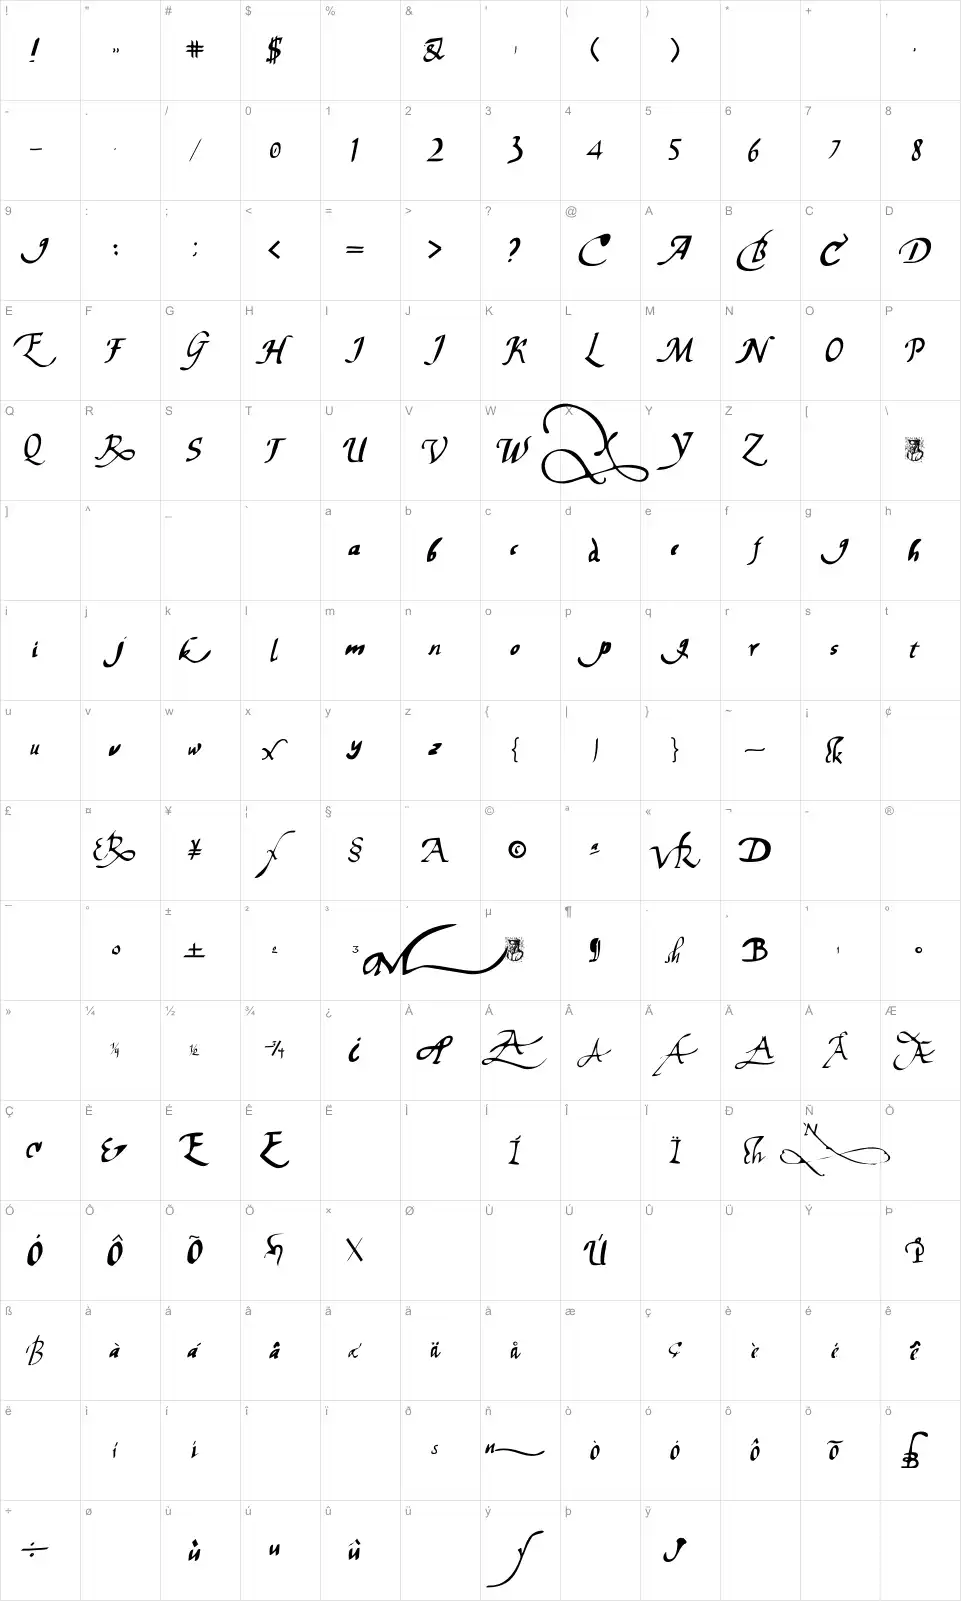 ! " # $ % & ' ( ) * + ,
! " # $ & ' ( ) ,
- . / 0 1 2 3 4 5 6 7 8
- . / 0 1 2 3 4 5 6 7 8
9 : ; < = > ? @ A B C D
9 : ; < = > ? C A B C D
E F G H I J K L M N O P
E F G H I J K L M N O P
Q R S T U V W X Y Z [ \
Q R S T U V W X Y Z
] ^ _ ` a b c d e f g h
a b c d e f g h
i j k l m n o p q r s t
i j k l m n o p q r s t
u v w x y z { | } ~ ¡ ¢
u v w x y z { | } ~
£ ¤ ¥ ¦ § ¨ © ª « ¬ - ®
R ¥ x § A © ª vk D
¯ ° ± ² ³ ´ µ ¶ · ¸ ¹ º
o ± 2 3 a ¶ sh B 1 º
» ¼ ½ ¾ ¿ À Á Â Ã Ä Å Æ
¼ ½ ¾ ¿ A A A A A Â Æ
Ç È É Ê Ë Ì Í Î Ï Ð Ñ Ò
c & E E Í Ï N
Ó Ô Õ Ö × Ø Ù Ú Û Ü Ý Þ
Ó Ô Õ h X Ú P
ß à á â ã ä å æ ç è é ê
B à á â ä å ç è é ê
ë ì í î ï ð ñ ò ó ô õ ö
í í s n ò ó ô õ B
÷ ø ù ú û ü ý þ ÿ
÷ ù u û y